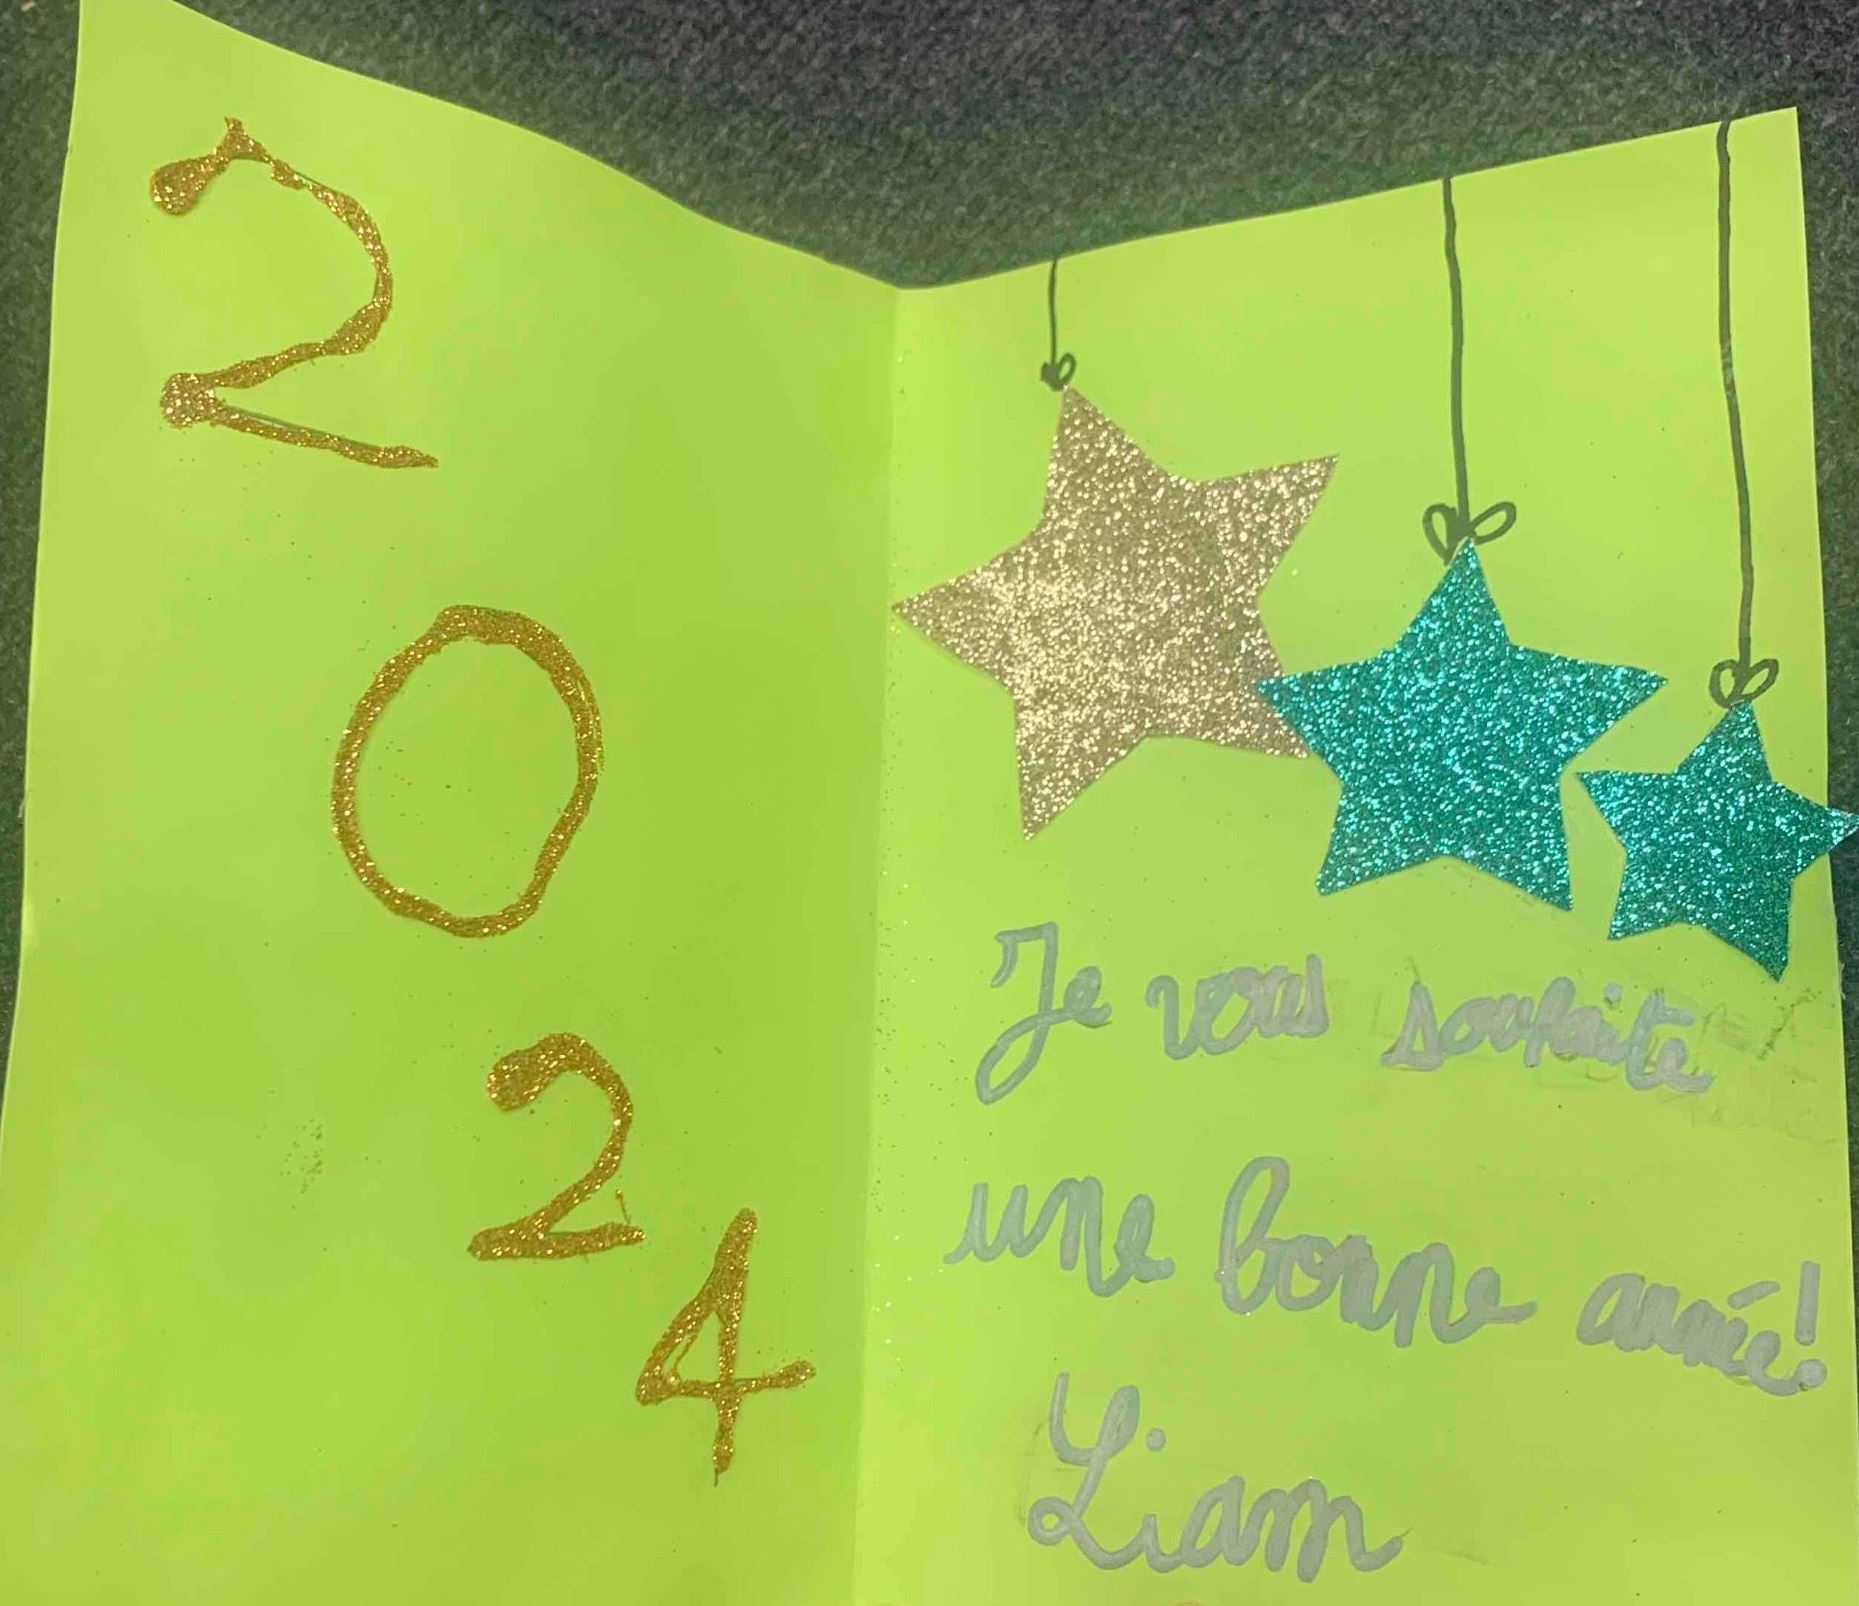 2
0
2
4
Je vous souhaite
une bonne année!
Liam